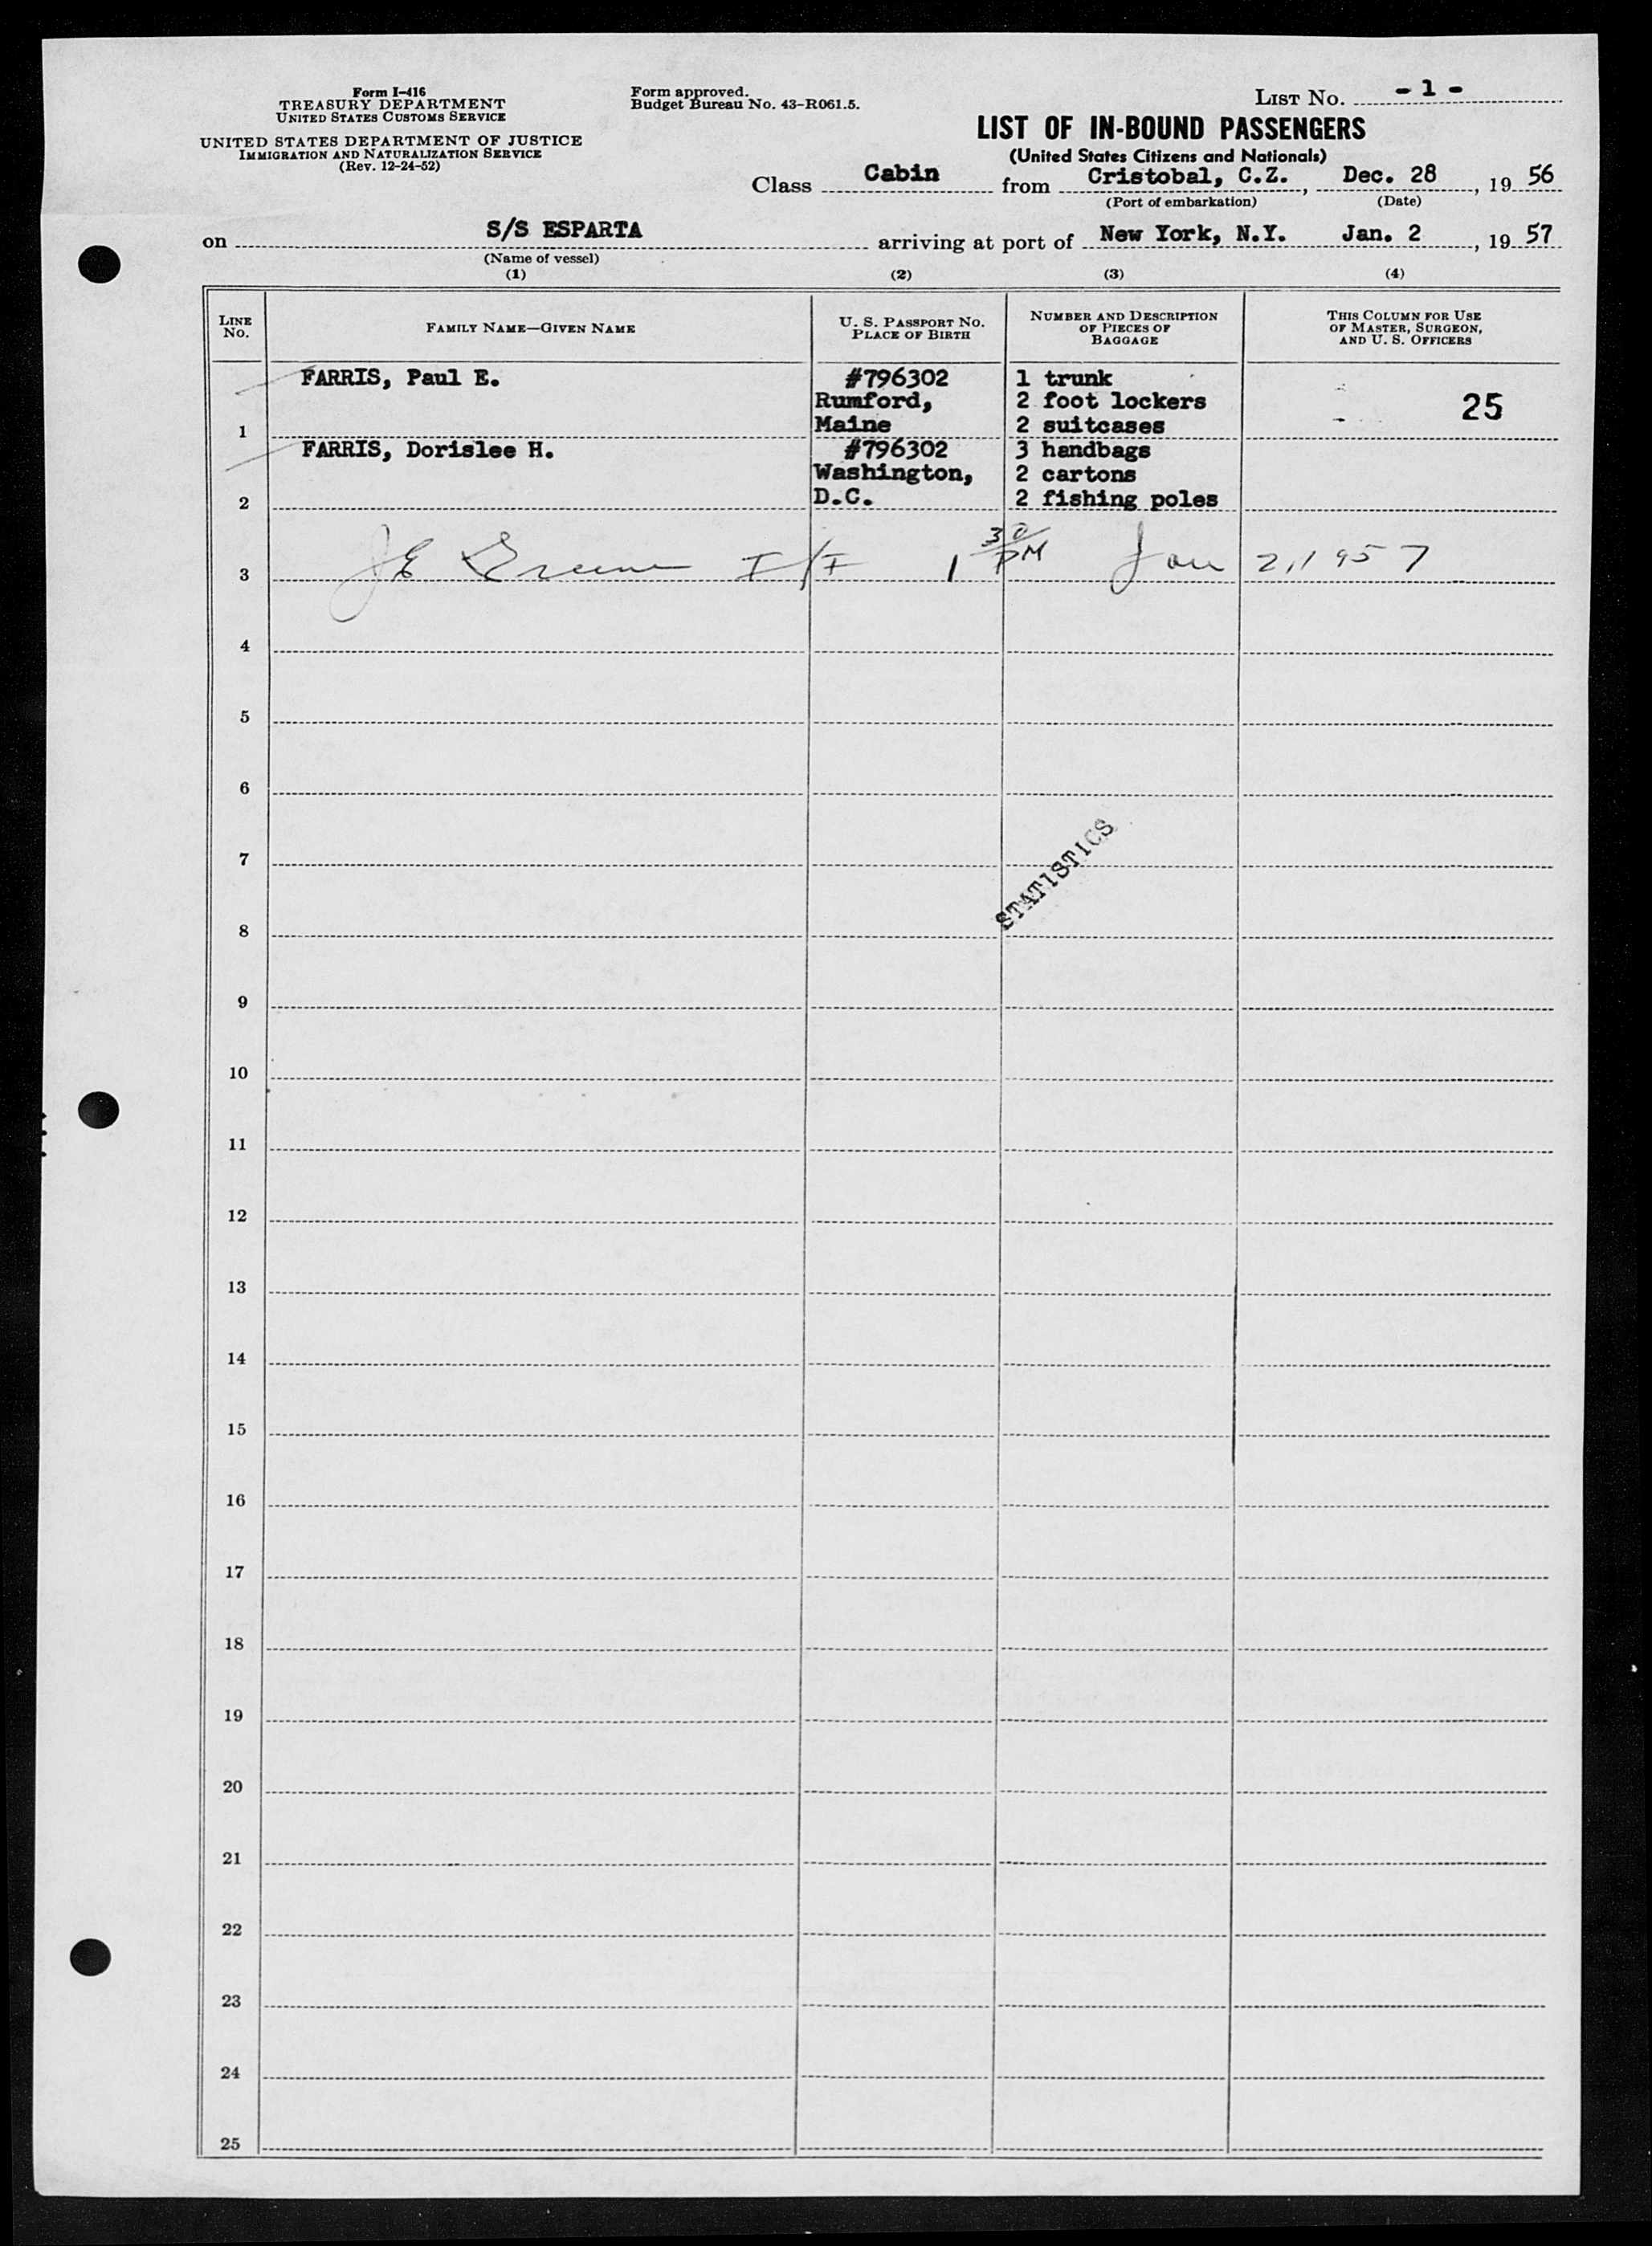 Form I-416
TREASURY DEPARTMENT
UNITED STATES CUSTOMS SERVICE
UNITED STATES DEPARTMENT OF JUSTICE
IMMIGRATION AND NATURALIZATION SERVICE
(Rev. 12-24-52)
Form approved.
Budget Bureau No. 43-R061.5.
LIST NO. - 1 -
LIST OF IN-BOUND PASSENGERS
(United States Citizens and Nationals)
Class Cabin from Cristobal, C.Z., Dec. 28, 19 56
(Port of embarkation) (Date)
on S/S ESPARTA arriving at port of New York, N.Y. Jan. 2, 19 57
(Name of vessel)
(1) (2) (3) (4)
LINE NO.
FAMILY NAME—GIVEN NAME
U. S. PASSPORT NO.
PLACE OF BIRTH
NUMBER AND DESCRIPTION
OF PIECES OF
BAGGAGE
THIS COLUMN FOR USE
OF MASTER, SURGEON,
AND U. S. OFFICERS
FARRIS, Paul E. #796302 1 trunk
Rumford, 2 foot lockers 25
1 Maine 2 suitcases
FARRIS, Dorislee H. #796302 3 handbags
Washington, 2 cartons
2 D.C. 2 fishing poles
3 1 30 PM Jan 2, 1957
4
5
6
7
STATISTICS
8
9
10
11
12
13
14
15
16
17
18
19
20
21
22
23
24
25